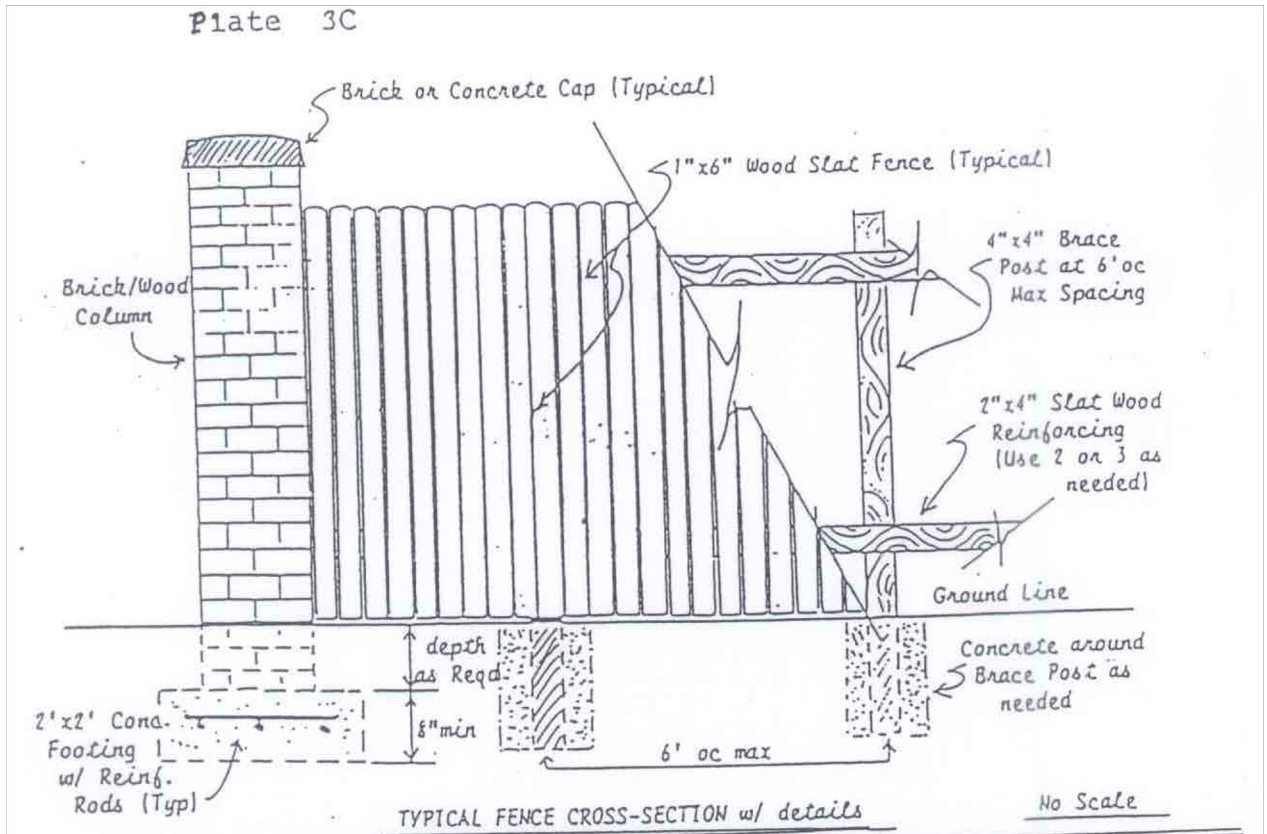 Plate 3C
Brick or Concrete Cap (Typical)
1"x6" Wood Slat Fence (Typical)
4"x4" Brace
Post at 6'oc
Max Spacing
Brick/Wood
Column
2"x4" Slat Wood
Reinforcing
(Use 2 or 3 as
needed)
Ground Line
depth
as Reqd
Concrete around
Brace Post as
needed
2'x2' Conc.
Footing
w/ Reinf.
Rods (Typ)
8"min
6' oc max
TYPICAL FENCE CROSS-SECTION w/ details
No Scale